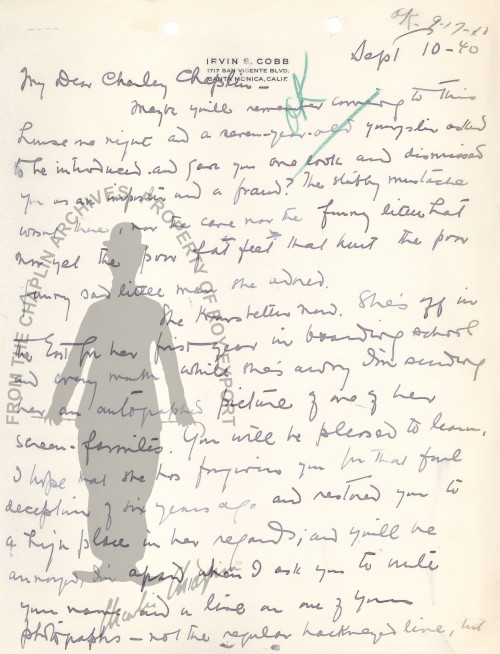 OK. 9-17-40
Sept 10-40
IRVIN S. COBB
1717 SAN VICENTE BLVD.
SANTA MONICA, CALIF.
OK
My Dear Charley Chaplin—
Maybe you'll remember coming to this
house one night and a seven-year-old youngster asked
to be introduced and gave you one look and dismissed
you as an imposter and a fraud? The stubby mustache
wasn't there, nor the cane nor the funny little hat
nor yet the poor flat feet that hurt the poor
funny sad little man she adored.
She knows better now. She's off in
the East for her first year in boarding school
and every month while she's away I'm sending
her an autographed picture of one of her
screen-favorites. You will be pleased to learn,
I hope that she has forgiven you for that foul
deception of six years ago and restored you to
a high place in her regards; and you'll be
annoyed, I'm afraid when I ask you to write
your name and a line on one of your
photographs — not the regular hackneyed line, but
FROM THE CHAPLIN ARCHIVES. PROPERTY OF ROY EXPORT
Charlie Chaplin